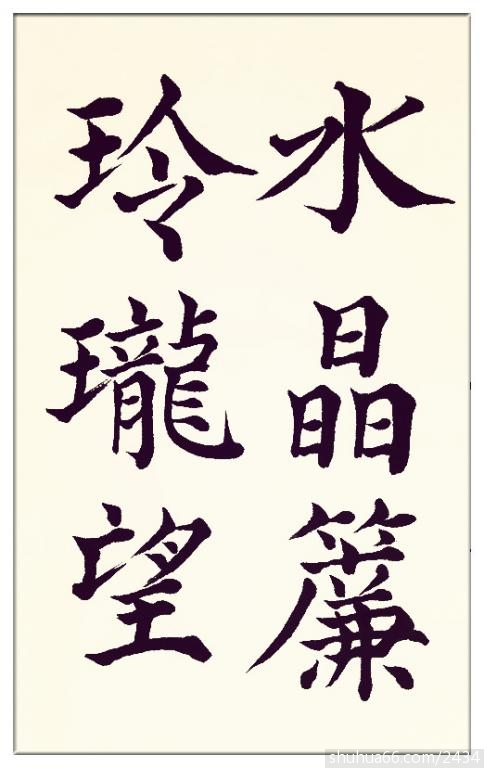 水晶簾
玲瓏望
shuhua66.com/2434